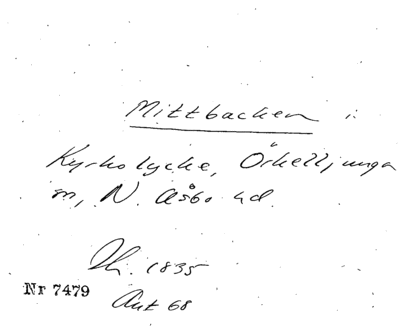 Mittbacken i
Kyrkolycke, Örkelljunga
sn, N. Åsbo hd.
Lh. 1835
Nr 7479
Akt 68